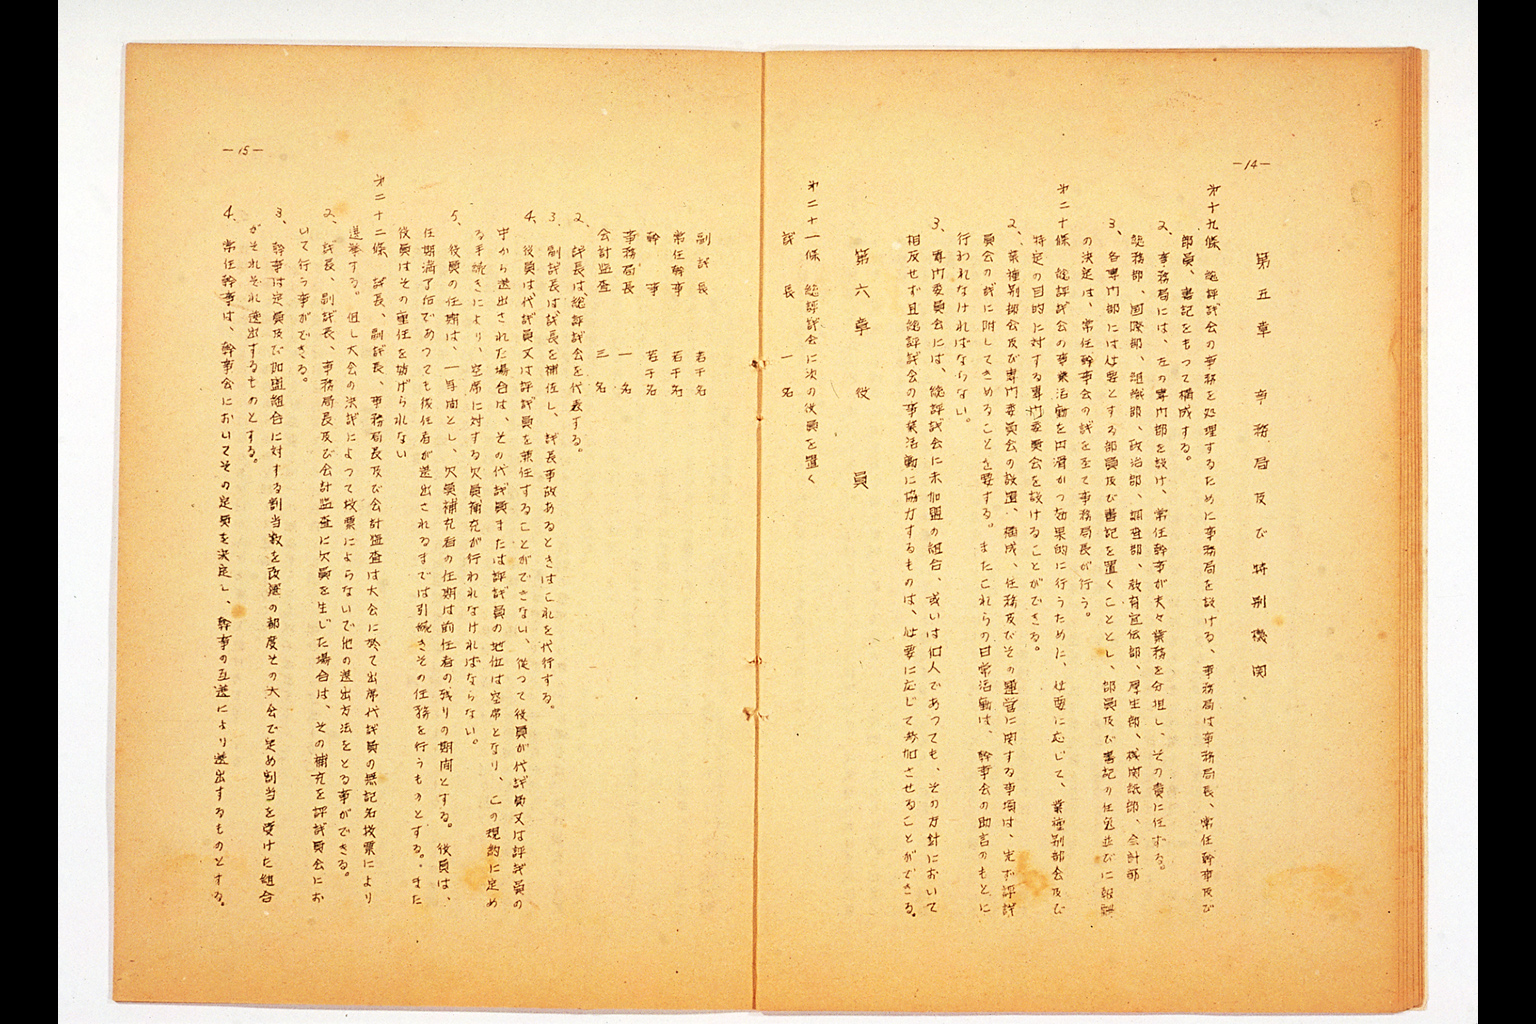 —14—
第五章　事務局及び特別機関
第十九條　総評議会の事務を処理するために事務局を設ける、事務局は事務局長、常任幹事及び
部員、書記をもつて構成する。
2、事務局には、左の専門部を設け、常任幹事が夫々業務を分担し、その責に任ずる。
総務部、国際部、組織部、政治部、調査部、教育宣伝部、厚生部、機関紙部、会計部
3、各専門部には必要とする部員及び書記を置くこととし、部員及び書記の任免並びに報酬
の決定は、常任幹事会の議を至て事務局長が行う。
第二十條　総評議会の事業活動を円滑かつ効果的に行うために、必要に応じて、業種別部会及び
特定の目的に対する専門委員会を設けることができる。
2、業種別部会及び専門委員会の設置、構成、任務及びその運営に関する事項は、先ず評議
員会の議に附してきめることを要する。またこれらの日常活動は、幹事会の助言のもとに
行われなければならない。
3、専門委員会には、総評議会に未加盟の組合、或いは個人であつても、その方針において
相反せず且総評議会の事業活動に協力するものは、必要に応じて参加させることができる。
第六章　役員
第二十一條　総評議会に次の役員を置く
議長　一名
—15—
副議長　若干名
常任幹事　若干名
幹事　若干名
事務局長　一名
会計監査　三名
2、議長は総評議会を代表する。
3、副議長は議長を補佐し、議長事故あるときはこれを代行する。
4、役員は代議員又は評議員を兼任することができない、従つて役員が代議員又は評議員の
中から選出された場合は、その代議員または評議員の地位は空席となり、この規約に定め
る手続きにより、空席に対する欠員補充が行われなければならない。
5、役員の任期は、一年間とし、欠員補充者の任期は前任者の残りの期間とする。役員は、
任期満了后であつても後任者が選出されるまでは引続きその任務を行うものとする。また
役員はその重任を妨げられない
第二十二條　議長、副議長、事務局長及び会計監査は大会に於て出席代議員の無記名投票により
選挙する。但し大会の決議によつて投票によらないで他の選出方法をとる事ができる。
2、議長、副議長、事務局長及び会計監査に欠員を生じた場合は、その補充を評議員会にお
いて行う事ができる。
3、幹事は定員及び加盟組合に対する割当数を改選の都度その大会で定め割当を受けた組合
がそれぞれ選出するものとする。
4、常任幹事は、幹事会においてその定員を決定し、幹事の互選により選出するものとする。